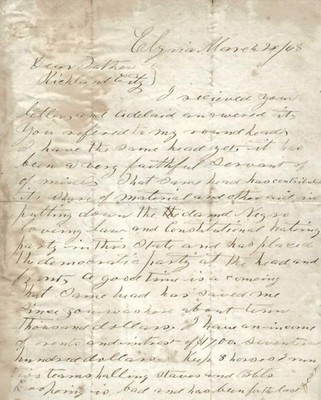 Elyria March 24/68
Dear Father
Richland City
I recieved your
letter and answered it
You refered to my round head
I have the same head yet it has
been a very faithful servant of
of mine. That same head has contributed
its share of material and other aid in
putting down the damd Negro
loveing Law and Constitutional hating
party in this State and has placed
the democratic party at the head and
front. A good time is a coming
that same head has saved me
since you was here about
thousand dollars. I have an income
of rents and interest of $1700 seventeen
hundred dollars. Keep 8 horses & run
teams hauling staves and Bbls
is bad and has been for the last